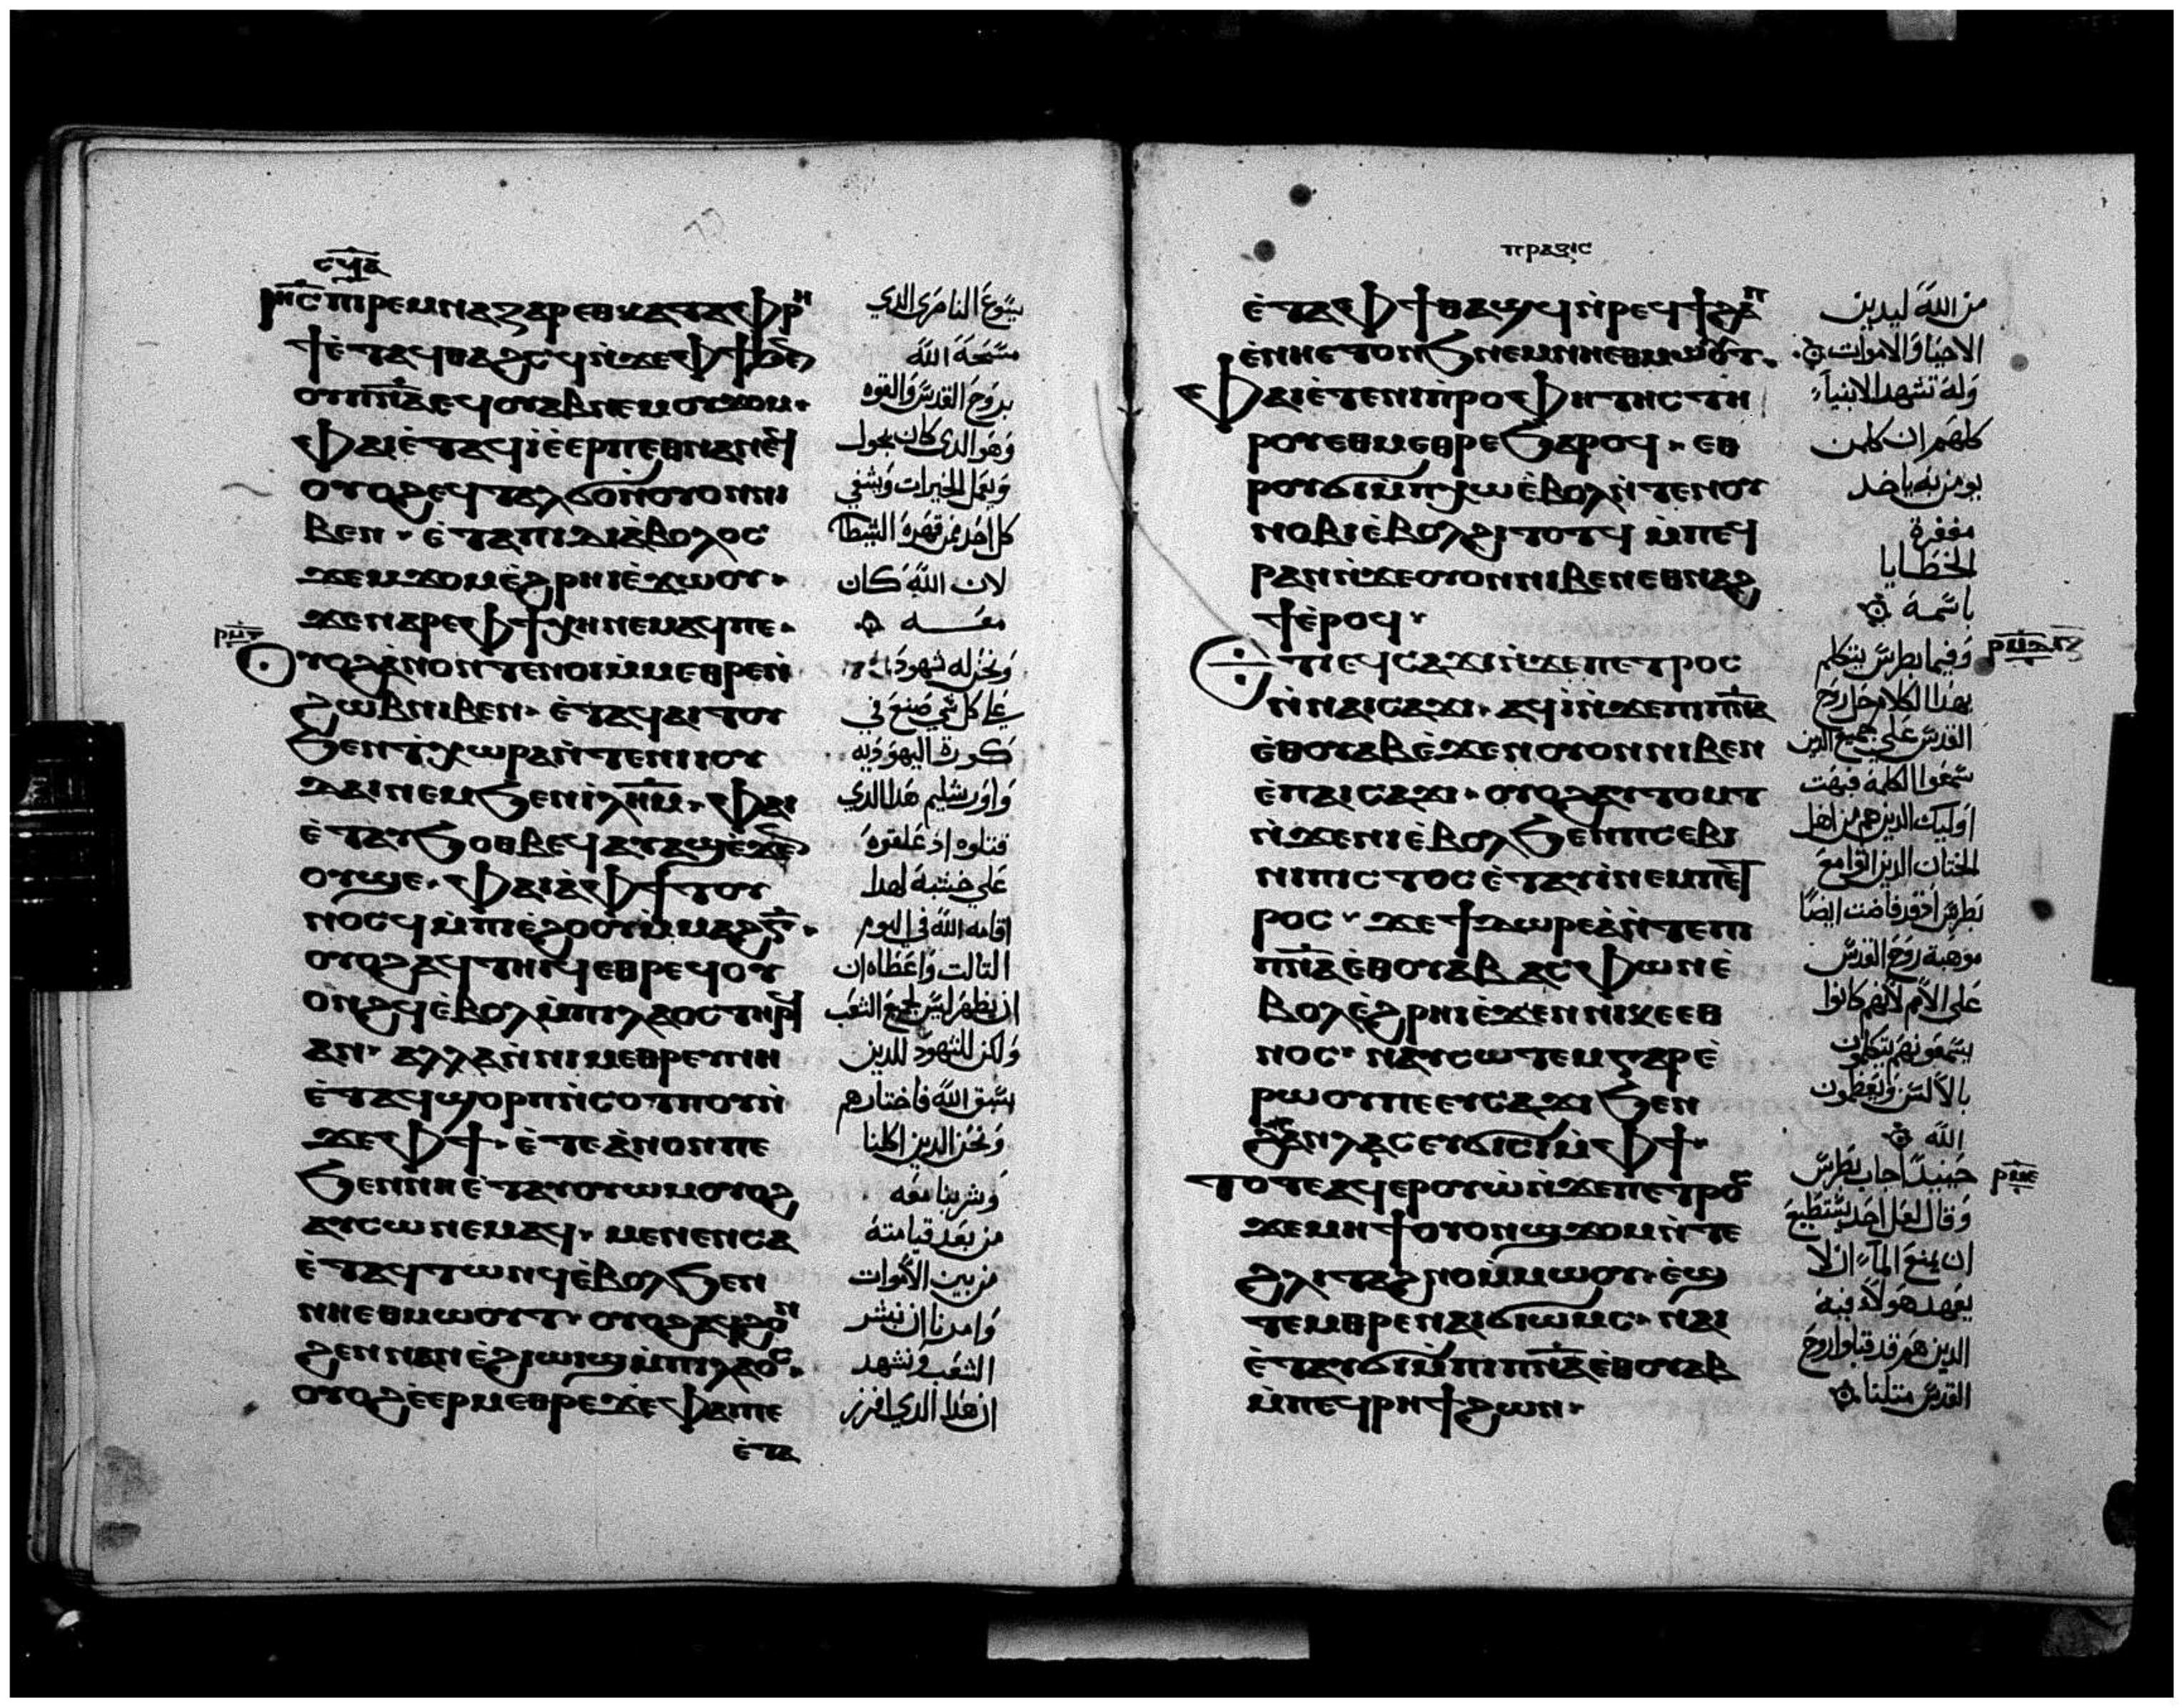 ⲓⲏ̅ⲥ̅ ⲡⲓⲣⲉⲙⲛⲁⲍⲁⲣⲉⲑ ⲕⲁⲧⲁⲫⲣⲏ
ϯ ⲉ̀ⲧⲁϥⲑⲁϩⲥϥ ⲛ̀ϫⲉⲫϯ ϧⲉⲛ
ⲟⲩⲡ̅ⲛ̅ⲁ̅ ⲉϥⲟⲩⲁⲃ ⲛⲉⲙ ⲟⲩϫⲟⲙ·
ⲫⲁⲓ ⲉ̀ⲧⲁϥⲓ̀ ⲉ̀ⲉⲣⲡⲉⲑⲛⲁⲛⲉϥ
ⲟⲩⲟϩ ⲉϥⲧⲁⲗϭⲟ ⲛ̀ⲟⲩⲟⲛ ⲛⲓ
ⲃⲉⲛ· ⲉ̀ⲧⲁⲡⲓⲇⲓⲁ̀ⲃⲟⲗⲟⲥ
ϫⲉⲙϫⲟⲙ ⲉ̀ϩⲣⲏⲓ ⲉ̀ϫⲱⲟⲩ·
ϫⲉⲛⲁⲣⲉⲫϯ ⲭⲏ ⲛⲉⲙⲁϥⲡⲉ·
ⲟⲩⲟϩ ⲁ̀ⲛⲟⲛ ⲧⲉⲛⲟⲓ ⲙ̀ⲙⲉⲑⲣⲉ ⲛ̀
ϩⲱⲃ ⲛⲓⲃⲉⲛ· ⲉ̀ⲧⲁϥⲁⲓⲧⲟⲩ
ϧⲉⲛ ϯⲭⲱⲣⲁ ⲛ̀ⲧⲉⲛⲓⲓⲟⲩ
ⲇⲁⲓ ⲛⲉⲙ ϧⲉⲛ ⲓ̅ⲗ̅ⲏ̅ⲙ̅· ⲫⲁⲓ
ⲉ̀ⲧⲁⲩϧⲟⲑⲃⲉϥ ⲁⲩⲁϣϥ ⲉ̀ϫⲉⲛ
ⲟⲩϣⲉ· ⲫⲁⲓ ⲁ̀ⲫϯ ⲧⲟⲩ
ⲛⲟⲥϥ ⲙ̀ⲡⲓⲉ̀ϩⲟⲟⲩ ⲙ̀ⲙⲁϩⲅ̅·
ⲟⲩⲟϩ ⲁϥⲧⲏⲓϥ ⲉⲑⲣⲉϥⲟⲩ
ⲟⲛϩϥ ⲉ̀ⲃⲟⲗ ⲙ̀ⲡⲓⲗⲁⲟⲥ ⲧⲏⲣϥ
ⲁⲛ· ⲁⲗⲗⲁ ⲛ̀ⲛⲓⲙⲉⲑⲣⲉ ⲛⲏ
ⲉ̀ⲧⲁϥϣⲟⲣⲡ ⲛ̀ⲥⲟⲧⲡⲟⲩ ⲛ̀
ϫⲉⲫϯ· ⲉ̀ⲧⲉⲁ̀ⲛⲟⲛⲡⲉ
ϧⲉⲛ ⲛⲏ ⲉ̀ⲧⲁⲩⲟⲩⲱⲙ ⲟⲩⲟϩ
ⲁⲩⲥⲱ ⲛⲉⲙⲁϥ· ⲙⲉⲛⲉⲛⲥⲁ
ⲉ̀ⲧⲁϥⲧⲱⲛϥ ⲉ̀ⲃⲟⲗ ϧⲉⲛ
ⲛⲏⲉⲑⲙⲱⲟⲩⲧ· ⲟⲩⲟϩ ⲁϥϩⲟⲛ
ϩⲉⲛ ⲛⲁⲛ ⲉ̀ϩⲓⲱⲓϣ ⲙ̀ⲡⲓⲗⲁⲟⲥ·
ⲟⲩⲟϩ ⲉ̀ⲉⲣⲙⲉⲑⲣⲉ ϫⲉ ⲫⲁⲓⲡⲉ
ⲉ̀ⲧⲁ
يسوع الناصري الدي
مسحه الله
بروح القدس والقوه
وهو الدي كان يجول
ويعمل الخيرات ويشفي
كل احد ممن قهره الشيطا
لان الله كان
معـــه
ونحن له شهودا
علي كل شي صنع في
كورة اليهوديه
واورشليم هدا الدي
قتلوه اد علقوه
علي خشبة لهدا
اقامه الله في اليوم
التالت واعطاه ان
ان يظهر ليس لجميع الشعب
ولكن للشهود للدين
سبق الله فاختارهم
ونحن الدين اكلنا
وشربنا معه
من بعد قيامته
من بين الاموات
وامرنا ان نبشر
الشعب ونشهد
ان هدا الدي افرز
ⲡⲣⲁⲝⲓⲥ
ⲉ̀ⲧⲁⲫϯ ⲑⲁϣϥ ⲛ̀ⲣⲉϥϯϩⲁⲡ
ⲉ̀ⲛⲏⲉⲧⲟⲛϧ ⲛⲉⲙ ⲛⲏⲉⲑⲙⲱⲟⲩⲧ·
ⲫⲁⲓ ⲉ̀ⲧⲉⲛⲓⲡ̀ⲣⲟⲫⲏⲧⲏⲥ ⲧⲏ
ⲣⲟⲩ ⲉⲣⲙⲉⲑⲣⲉ ϧⲁⲣⲟϥ· ⲉⲑ
ⲣⲟⲩϭⲓ ⲙ̀ⲡⲭⲱ ⲉ̀ⲃⲟⲗ ⲛ̀ⲧⲉⲛⲟⲩ
ⲛⲟⲃⲓ ⲉ̀ⲃⲟⲗ ϩⲓⲧⲟⲧϥ ⲙ̀ⲡⲉϥ
ⲣⲁⲛ ⲛ̀ϫⲉⲟⲩⲟⲛ ⲛⲓⲃⲉⲛ ⲉⲑⲛⲁϩ
ϯ ⲉ̀ⲣⲟϥ·
ⲉⲧⲓ ⲉϥⲥⲁϫⲓ ⲛ̀ϫⲉⲡⲉⲧⲣⲟⲥ
ⲛ̀ⲛⲁⲓⲥⲁϫⲓ· ⲁϥⲓ̀ ⲛ̀ϫⲉⲡⲓⲡ̅ⲛ̅ⲁ̅
ⲉ̀ⲑⲟⲩⲁⲃ ⲉ̀ϫⲉⲛ ⲟⲩⲟⲛ ⲛⲓⲃⲉⲛ
ⲉ̀ⲡⲁⲓⲥⲁϫⲓ· ⲟⲩⲟϩ ⲁⲩⲧⲱⲙⲧ
ⲛ̀ϫⲉⲛⲓⲉ̀ⲃⲟⲗ ϧⲉⲛ ⲡⲥⲉⲃⲓ
ⲛⲓⲡⲓⲥⲧⲟⲥ ⲉ̀ⲧⲁⲩⲓ̀ ⲛⲉⲙ ⲡⲉⲧ
ⲣⲟⲥ· ϫⲉϯⲇⲱⲣⲉⲁ̀ ⲛ̀ⲧⲉⲡⲓ
ⲡ̅ⲛ̅ⲁ̅ ⲉⲑⲟⲩⲁⲃ ⲁⲥⲫⲱⲛ ⲉ̀
ⲃⲟⲗ ⲉ̀ϩⲣⲏⲓ ⲉ̀ϫⲉⲛ ⲛⲓⲕⲉⲉⲑ
ⲛⲟⲥ· ⲛⲁⲩⲥⲱⲧⲉⲙ ⲅⲁⲣ ⲉ̀
ⲣⲱⲟⲩⲡⲉ ⲉⲩⲥⲁϫⲓ ϧⲉⲛ
ϩⲁⲛⲗⲁⲥ ⲉⲩϭⲓⲥⲓ ⲙ̀ⲫϯ·
ⲧⲟⲧⲉ ⲁϥⲉⲣⲟⲩⲱ̀ ⲛ̀ϫⲉⲡⲉⲧⲣⲟⲥ
ϫⲉⲙⲏϯ ⲟⲩⲟⲛϣϫⲟⲙ ⲛ̀ⲧⲉ
ϩⲗⲓ ⲧⲁϩⲛⲟ ⲙ̀ⲙⲱⲟⲩ· ⲉ̀ϣ
ⲧⲉⲙⲑⲣⲉⲛⲁⲓ ϭⲓⲱⲙⲥ· ⲛⲁⲓ
ⲉ̀ⲧⲁⲩϭⲓ ⲙ̀ⲡⲓⲡ̅ⲛ̅ⲁ̅ ⲉ̀ⲑⲟⲩⲁⲃ
ⲙ̀ⲡⲉⲛⲣⲏϯ ϩⲱⲛ·
من الله ليدين
الاحيا والاموات
وله تشهد الانبياء
كلهم ان كلمن
يومن به ياخد
مغفرة
الخطايا
باسمه
وفيما بطرس يتكلم
بهدا الكلام حل روح
القدس علي جميع الدين
سمعوا الكلمة فبهت
اوليك الدين هم من اهل
الختان الدين اتوا مع
بطرس اد قد فاضت ايضا
موهبة روح القدس
علي الامم لانهم كانوا
يسمعونهم يتكلمون
بالالسن ويعظمون
الله
حينيدا اجاب بطرس
وقال لعل احد يستطيع
ان يمنع الماء ان لا
يعمد هولاء فيه
الدين هم قد قبلوا روح
القدس متلنا
ⲣⲙⲉ